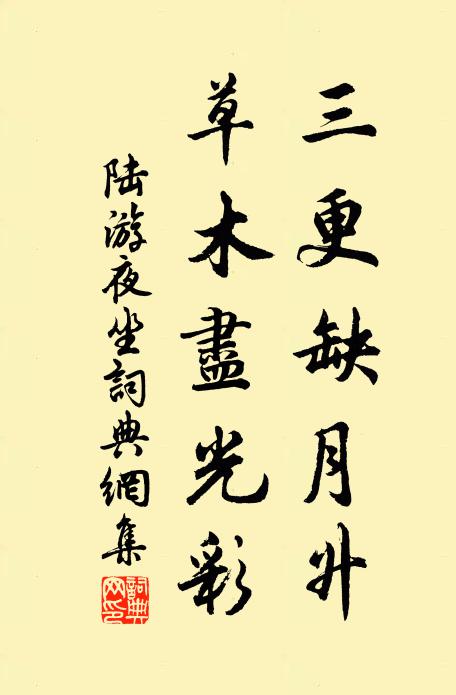 三更缺月升
草木盡光彩
陆游夜坐詞典網集
詞典網印